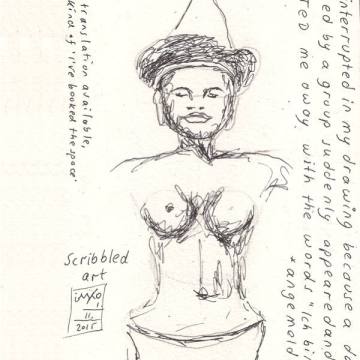 interrupted in my drawing because a d
ed by a group suddenly appearedand
TED me away, with the words "Ich bin
*angemold
translation available,
kind of 'I've booked the space'
Scribbled
art
iMXo
11.
2015